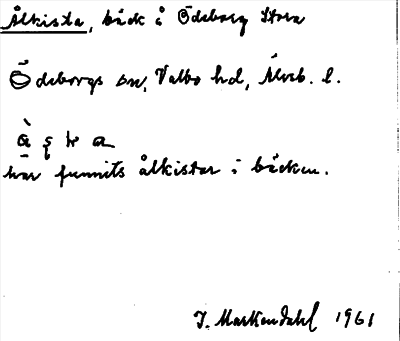 Ålkista, bäck å Ödeborg Stora
Ödeborgs sn, Valbo hd, Älvsb. l.
har funnits ålkistar i bäcken.
I. Markendahl 1961